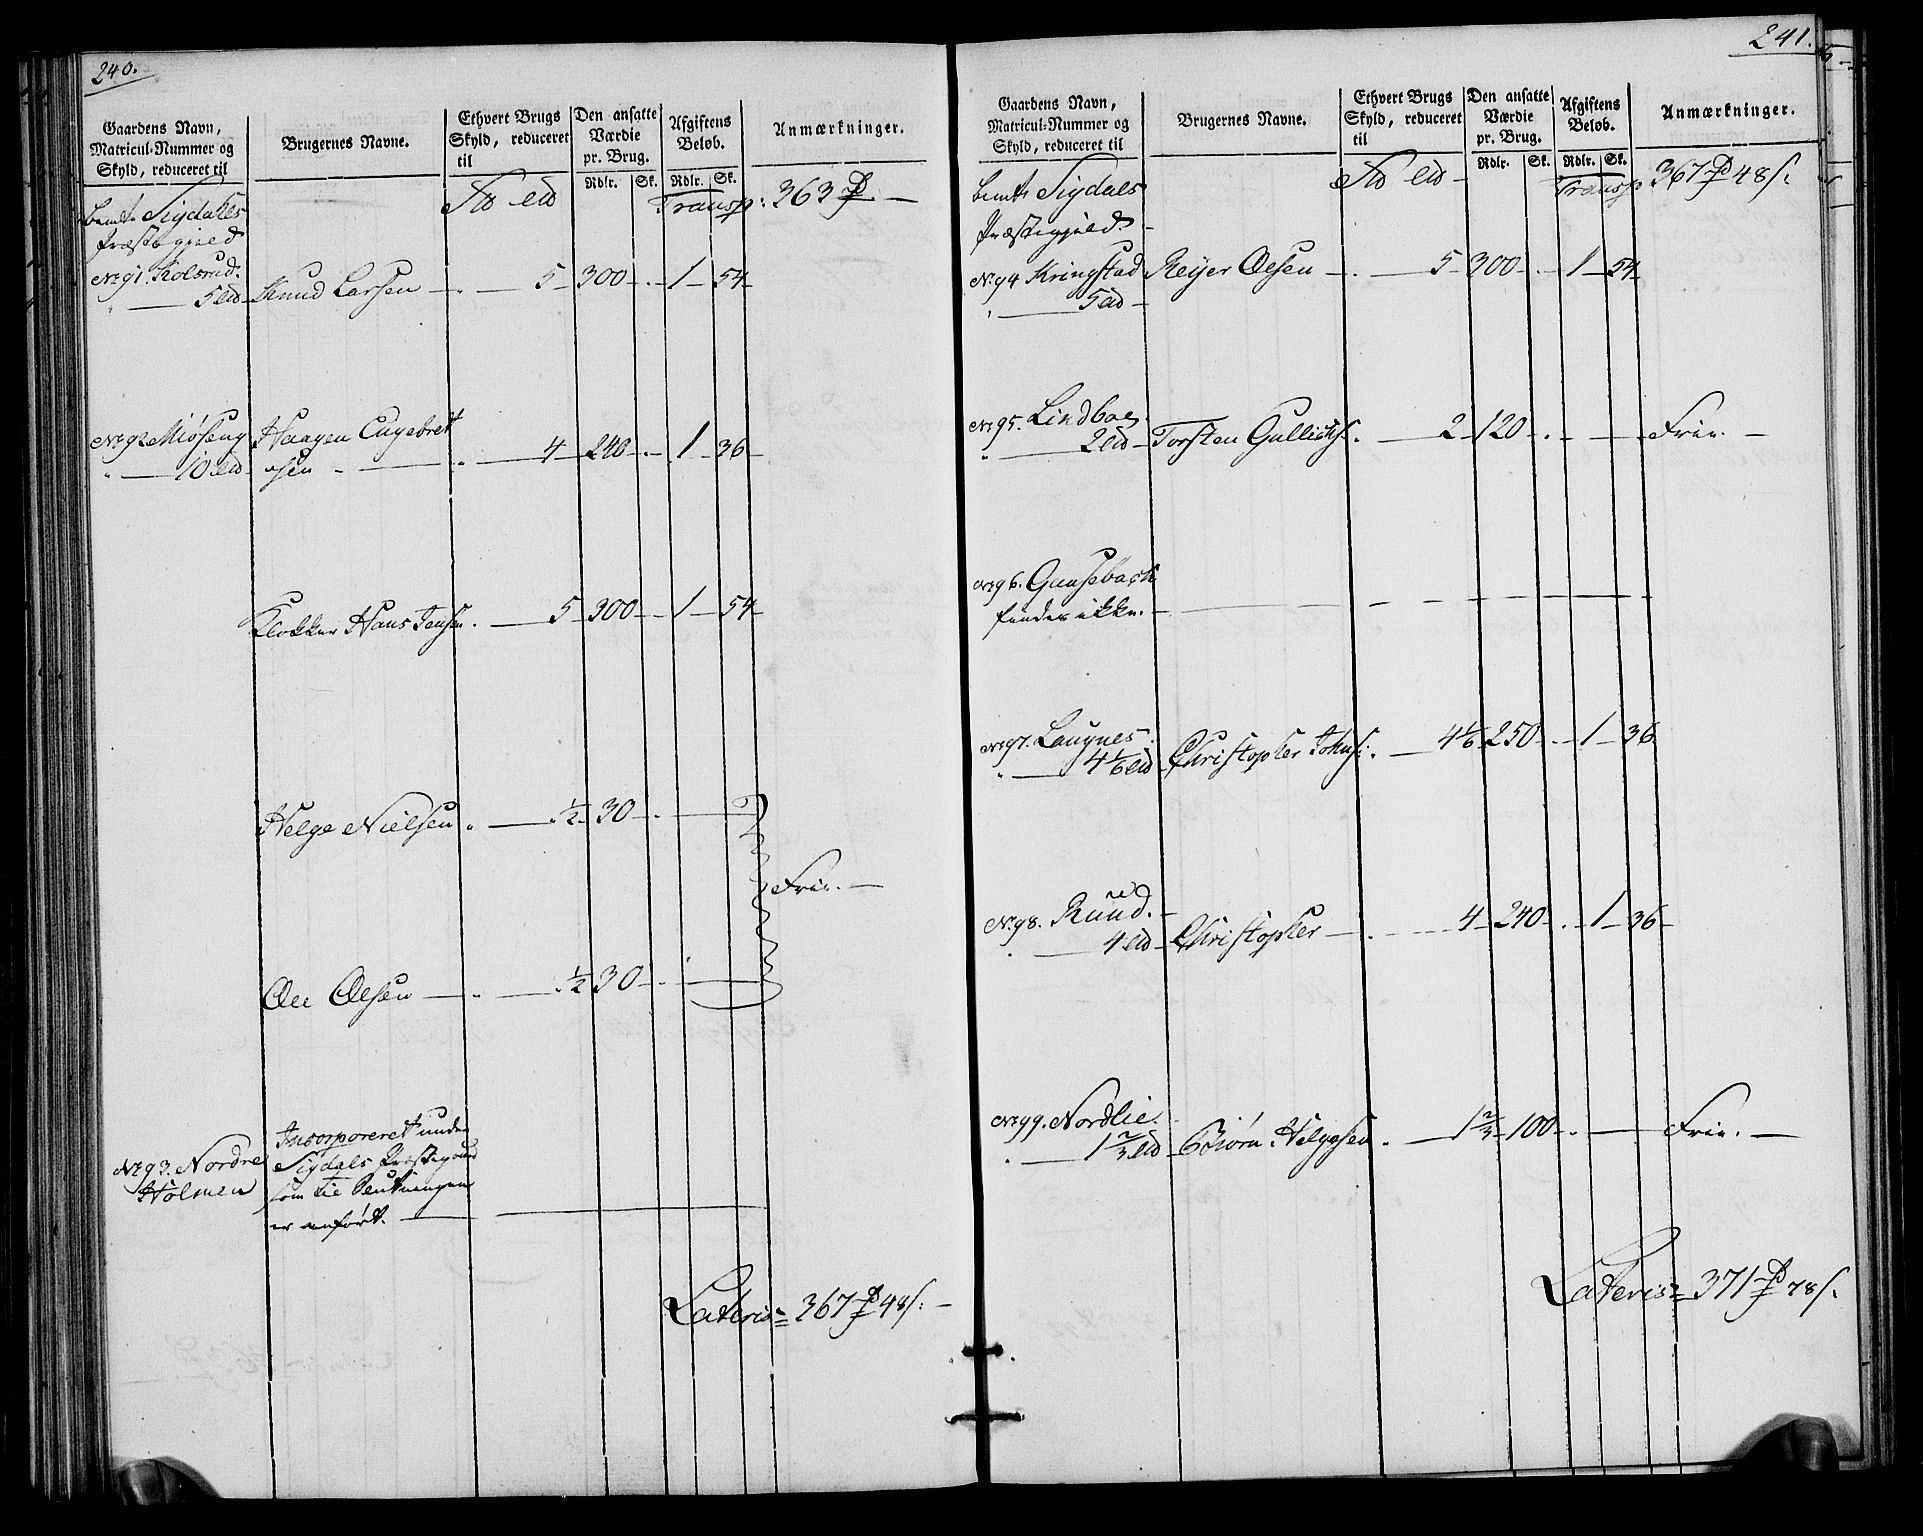 240.
Gaardens Navn,
Matricul-Nummer og
Skyld, reduceret til
Brugernes Navne.
Ethvert Brugs
Skyld, reduceret
til
Den ansatte
Værdie
pr. Brug.
Rdlr. Sk.
Afgiftens
Beløb.
Rdlr. Sk.
Anmærkninger.
Sigdahls Transp: 363
Præstegield
No 91. Kolsrud.
5 Knud Larsen 5 300 1 54
No 92 Miøseng Haagen Engebret
10 sen 4 240 1 36
Klokker Hans Jensen. 5 300 1 54
Helge Nielsen 1/2 30
Frie.
Ole Olsen 1/2 30
No 93. Nordre Incorporeret under
Holmen Sigdals Præstegaard
som
er anført.
Lateris 367 48 s:
241.
Gaardens Navn,
Matricul-Nummer og
Skyld, reduceret til
Brugernes Navne.
Ethvert Brugs
Skyld, reduceret
til
Den ansatte
Værdie
pr. Brug.
Rdlr. Sk.
Afgiftens
Beløb.
Rdlr. Sk.
Anmærkninger.
Sigdals Transp 367 48 s.
Præstegield
No 94 Kringstad Reyer Olsen 5 300 1 54
5
No 95. Lindboe
2 Torsten Gullichs. 2 120 Frie.
No 96. Gunsebach
findes ikke.
No 97. Laugnes.
4 1/6 Christopher Johns: 4 1/6 250 1 36
No 98. Ruud.
4 Christopher 4 240 1 36
No 99. Nordlie.
1 2/3 Biørn Helgesen. 1 2/3 100 Frie.
Lateris 371 78 s.